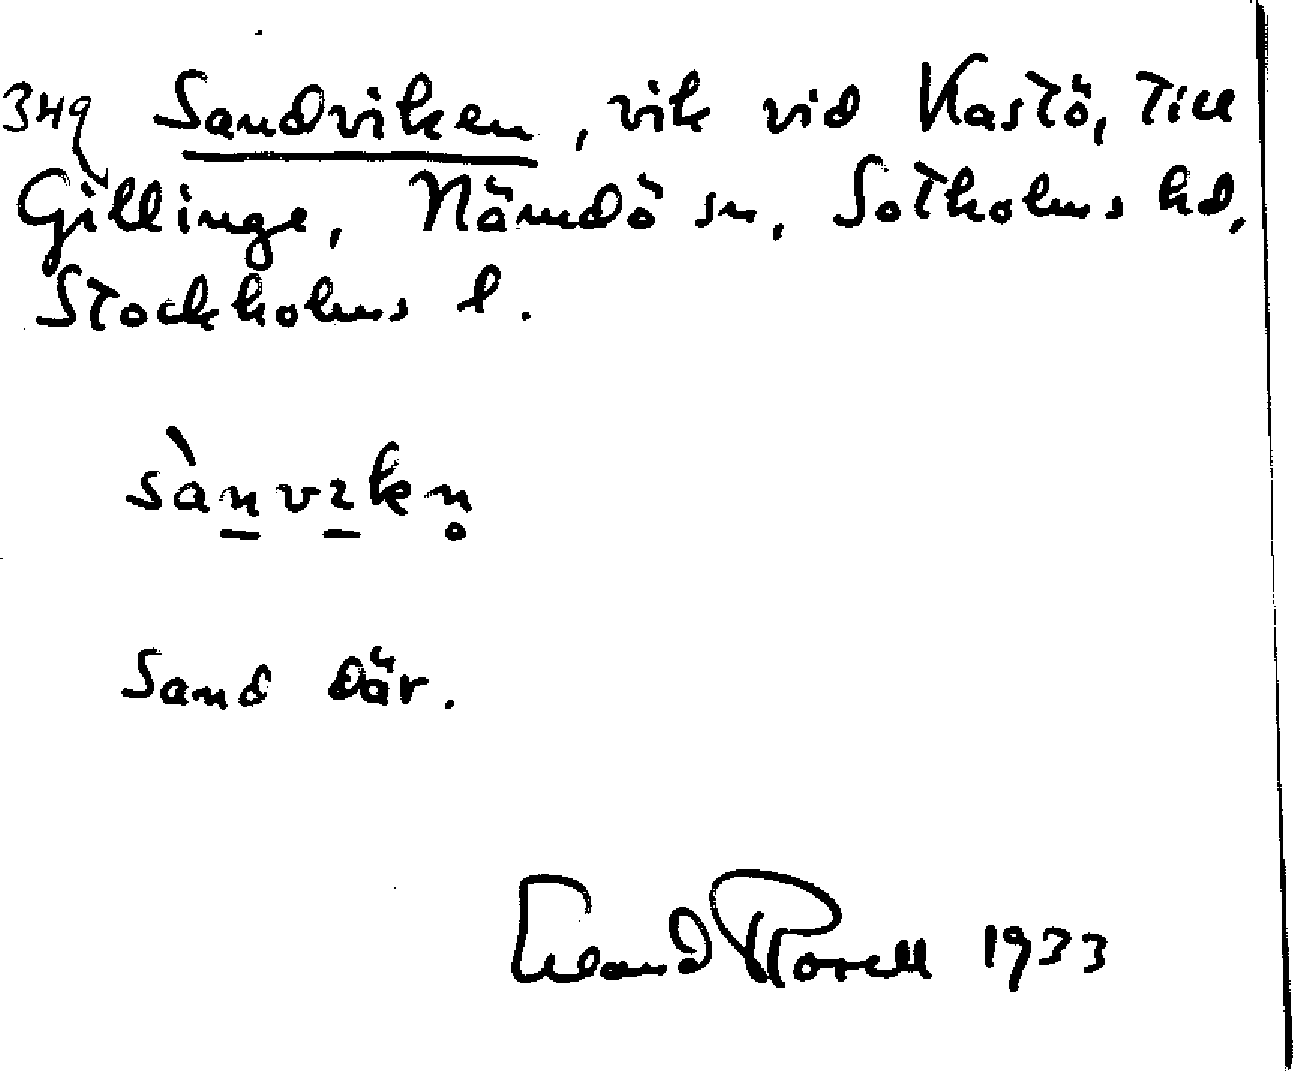 349 Sandviken, vik vid Kastö, till
Gillinge, Nämdö sn, Sotholms hd,
Stockholms l.
sànvɪkn̥
Sand där.
1933